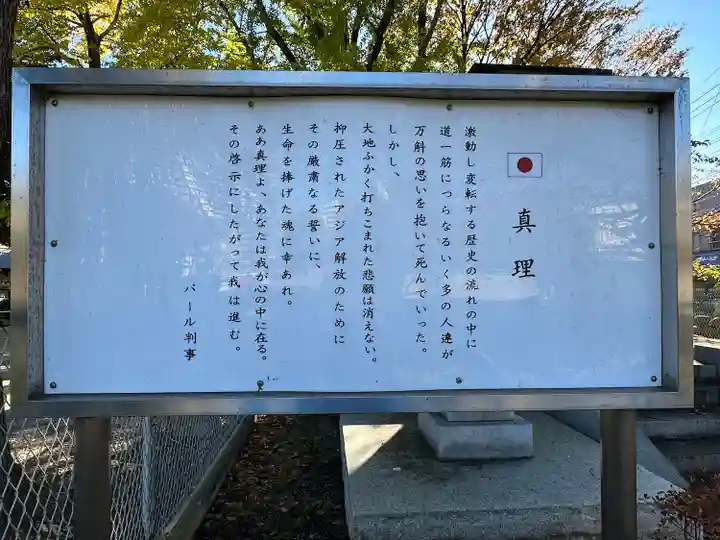 真理
激動し変転する歴史の流れの中に
道一筋につらなるいく多の人達が
万斛の思いを抱いて死んでいった。
しかし、
大地ふかく打ちこまれた悲願は消えない。
抑圧されたアジア解放のために
その厳粛なる誓いに、
生命を捧げた魂に幸あれ。
ああ真理よ、あなたは我が心の中に在る。
その啓示にしたがって我は進む。
パール判事